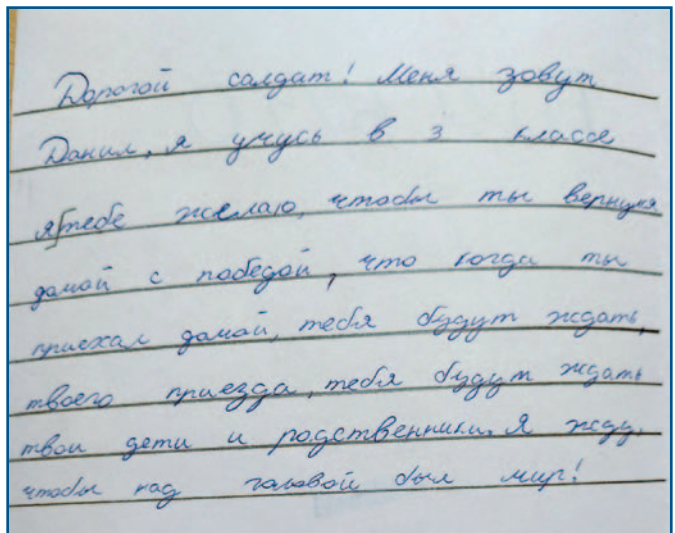 Дорогой солдат! Меня зовут
Данил, я учусь в 3 классе
я тебе желаю, чтобы ты вернулся
домой с победой, что когда ты
приехал домой, тебя будут ждать,
твоего приезда, тебя будут ждать
твои дети и родственники. Я жду,
чтобы над головой был мир!